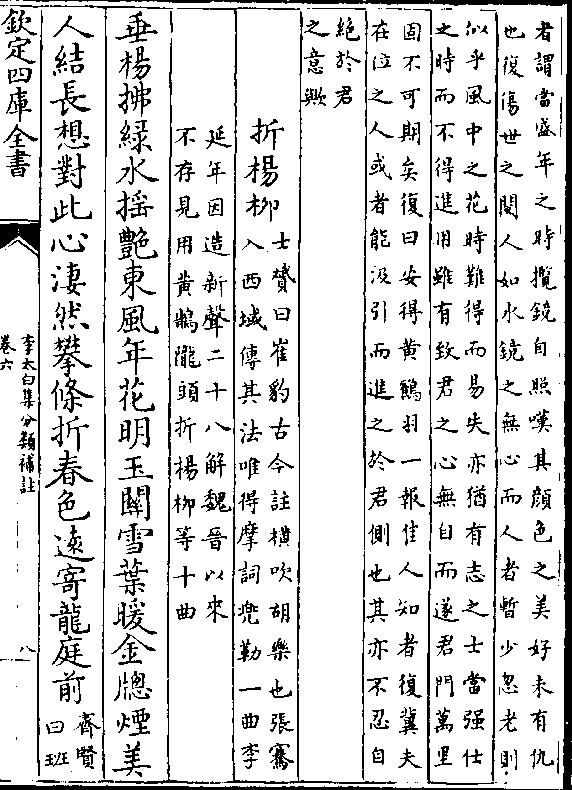 者謂當盛年之時攬鏡自照嘆其顔色之美好未有仇
也復傷世之閱人如水鏡之無心而人者暫少忽老則
似乎風中之花時難得而易失亦猶有志之士當强仕
之時而不得進用雖有致君之心無自而遂君門萬里
固不可期矣復曰安得黄鶴羽一報佳人知者復冀夫
在位之人或者能汲引而進之於君側也其亦不忍自
絶於君
之意歟
折楊柳
士贇曰崔豹古今註橫吹胡樂也張騫
入西域傳其法唯得摩訶兜勒一曲李
延年因造新聲二十八解魏晉以來
不存見用黄鵠隴頭折楊柳等十曲
垂楊拂緑水揺艷東風年花明玉關雪葉暖金牕煙美
人結長想對此心淒然攀條折春色遠寄龍庭前
齊賢
曰班
欽定四庫全書
李太白集分類補註
卷六
八